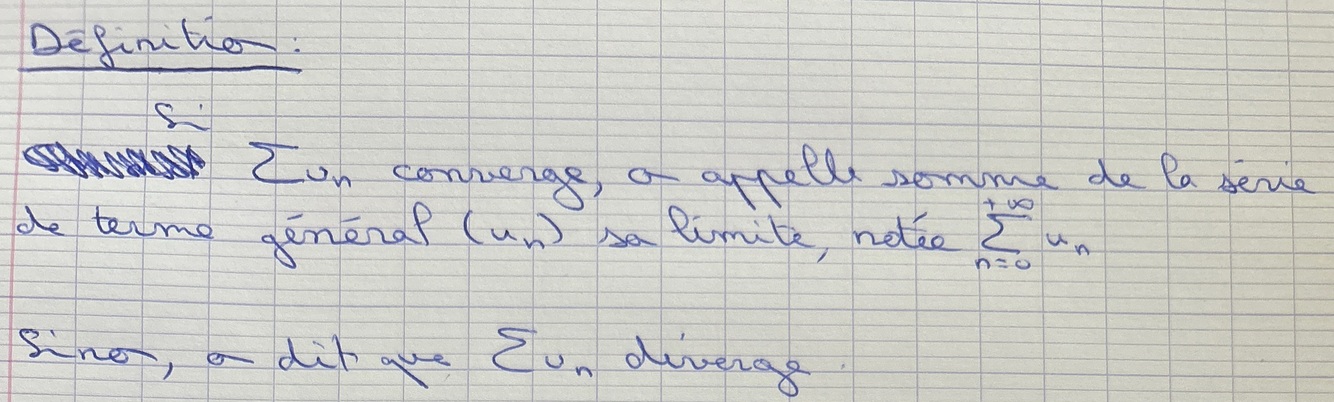 Définition :
Si
∑un converge, on appelle somme de la série
de terme général (un) sa limite, notée ∑_{n=0}^{+∞} un
Sinon, on dit que ∑un diverge.